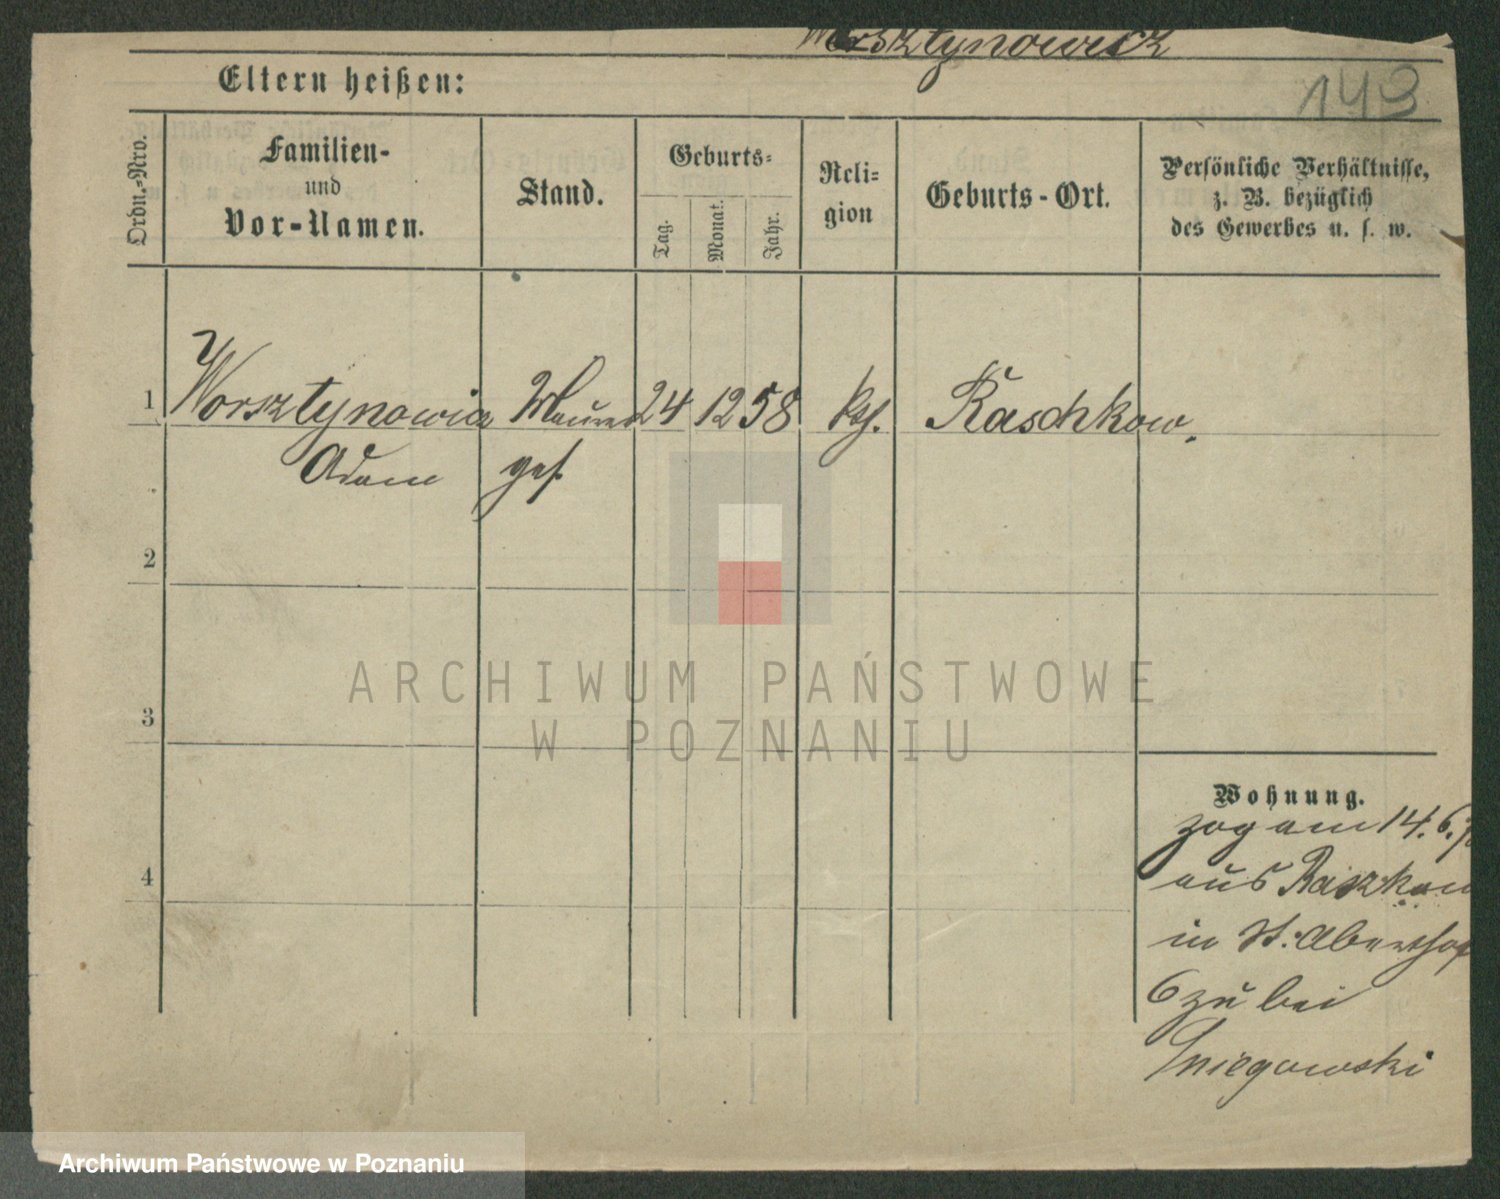 Worsztynowicz
143
Eltern heißen:
Ordn.-Nro.
Familien-
und
Vor-Namen.
Stand.
Geburts-
Tag.
Monat.
Jahr.
Reli-
gion
Geburts-Ort.
Persönliche Verhältnisse,
z. B. bezüglich
des Gewerbes u. s. w.
1 Worsztynowicz Maurer 24 12 58 kth. Raschkow.
Adam ges.
2
3
4
Wohnung.
zog am 14. 6.
aus Raszkow
in St:
6 zu bei
Sniegowski
ARCHIWUM PAŃSTWOWE
W POZNANIU
Archiwum Państwowe w Poznaniu